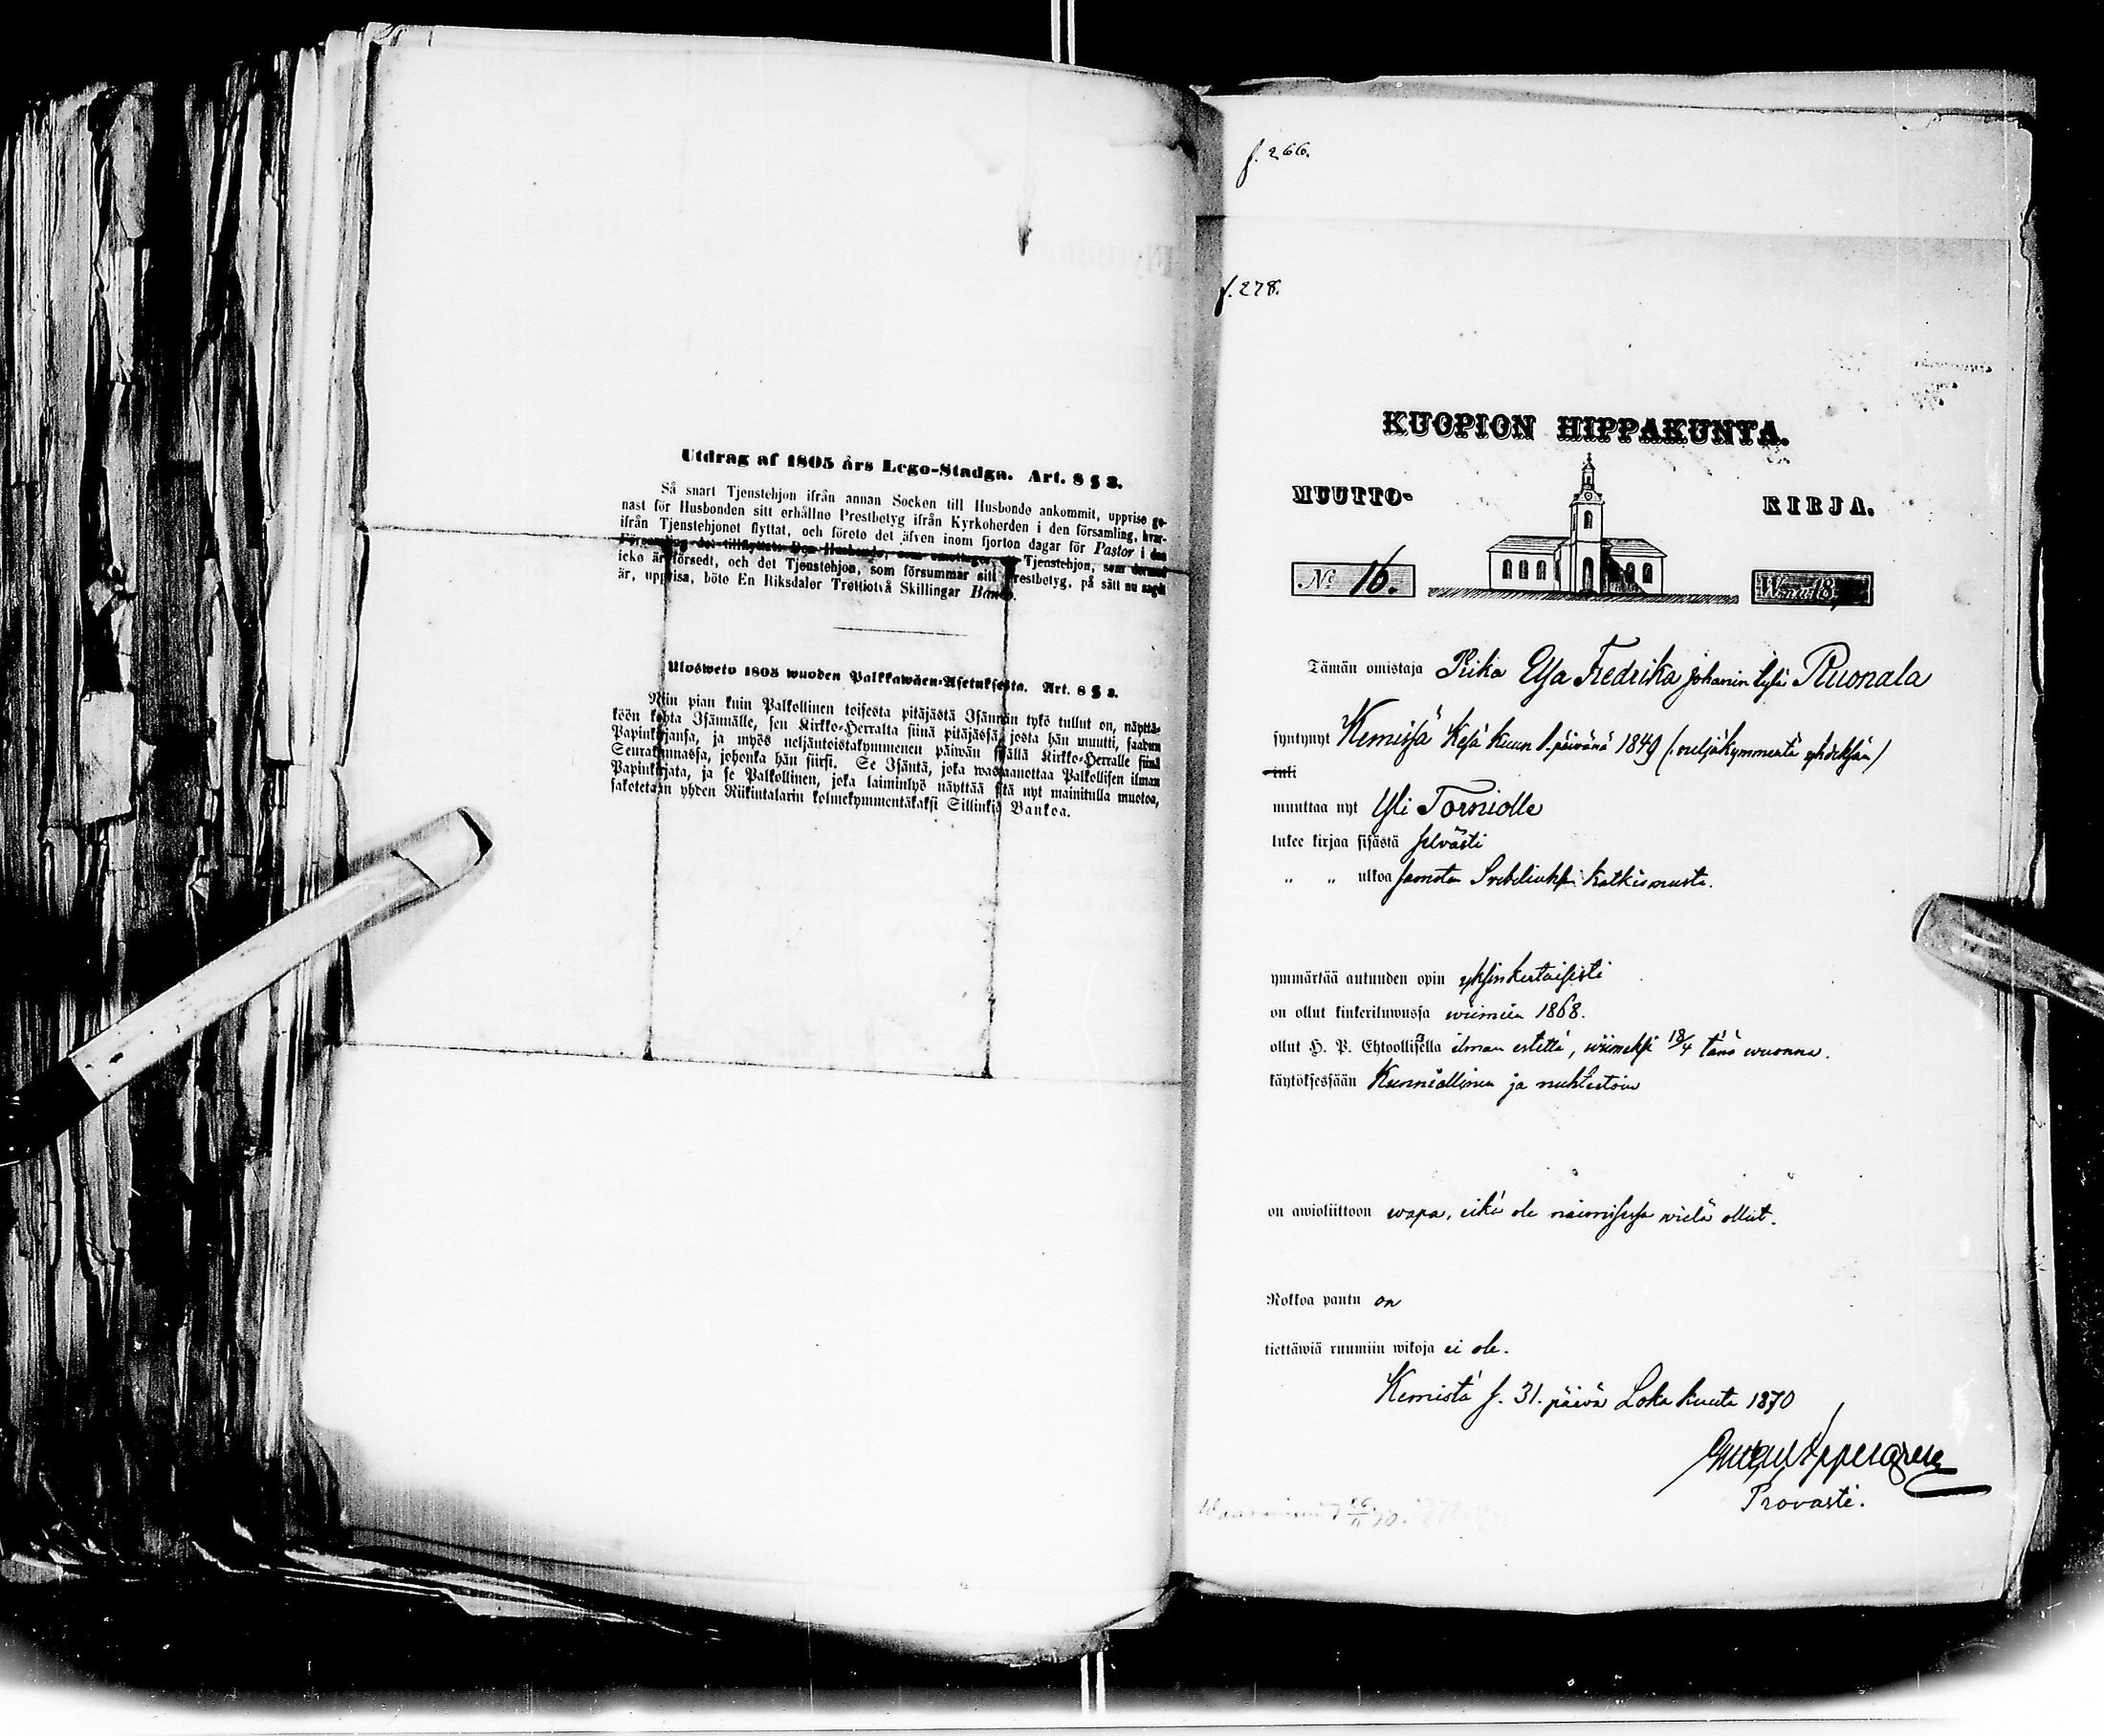 Utdrag af 1805 års Lego-Stadga. Art. 8 § 3.
Så snart Tjenstehjon ifrån annan Socken till Husbonde ankommit, uppvise ge-
nast för Husbonden sitt erhållne Prestbetyg ifrån Kyrkoherden i den församling, hvar-
ifrån Tjenstehjonet flyttat, och förete det äfven inom fjorton dagar för Pastor i den
Församling det tillflyttat. Den Husbonde, som emottager Tjenstehjon, som dermed
icke är försedt, och det Tjenstehjon, som försummar sitt Prestbetyg, på sätt nu sagdt
är, uppvisa, böte En Riksdaler Trettiotvå Skillingar Banco.
Ulosweto 1805 wuoden Palkkawäen-Asetuksesta. Art. 8 § 3.
Niin pian kuin Palkollinen toisesta pitäjästä Isännän tykö tullut on, näyttä-
köön kohta Isännälle, sen Kirkko-Herralta siinä pitäjässä, josta hän muutti, saadun
Papinkirjansa, ja myös neljäntoistakymmenen päiwän sisällä Kirkko-Herralle siinä
Seurakunnassa, johonka hän siirsi. Se Isäntä, joka wastaanottaa Palkollisen ilman
Papinkirjata, ja se Palkollinen, joka laiminlyö näyttää sitä nyt mainitulla muotoa,
sakotetaan yhden Riikintalarin kolmekymmentäkaksi Sillinkiä Bankoa.
f. 266.
f. 278.
KUOPION HIPPAKUNTA.
MUUTTO- KIRJA.
No 16. W:na 18
Tämän omistaja Piika Elsa Fredrika Johanin tytär Ruonala
syntynyt Kemissä Kesä kuun 1. päivänä 1849 (neljäkymmentä yhdeksän)
muuttaa nyt Yli Torniolle
lukee kirjaa sisästä selvästi
" " ulkoa samoten Svebeliuksen katkismusta.
ymmärtää autuuden opin yksinkertaisesti
on ollut kinkeriluwussa wiimein 1868.
ollut H. P. Ehtoollisella ilman estettä, wiimeksi 18/4 tänä wuonna.
käytöksessään Kunniallinen ja nuhteetoin
on awioliittoon wapa, eikä ole naimisessa wielä ollut.
Rokkoa pantu on
tiettäwiä ruumiin wikoja ei ole.
Kemistä s. 31. päivä Loka kuuta 1870
Provasti.